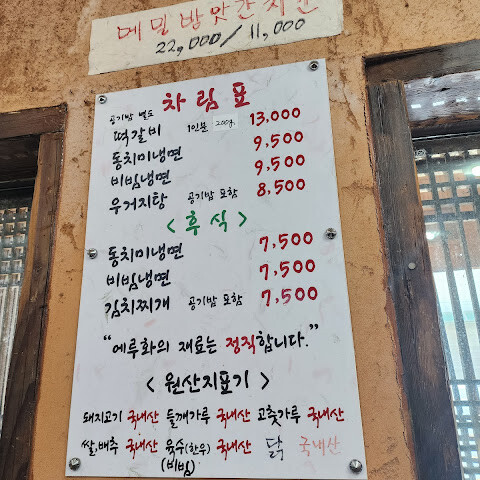 메밀밤맛간치킨
22,000 / 11,000
차림표
공기밥 별도
떡갈비 1인분 200g. 13,000
동치미냉면 9,500
비빔냉면 9,500
우거지탕 공기밥 포함 8,500
< 후식 >
동치미냉면 7,500
비빔냉면 7,500
김치찌개 공기밥 포함 7,500
“에루화의 재료는 정직합니다.”
< 원산지표기 >
돼지고기 국내산 들깨가루 국내산 고춧가루 국내산
쌀,배추 국내산 육수(한우) 국내산 닭 국내산
(비빔)